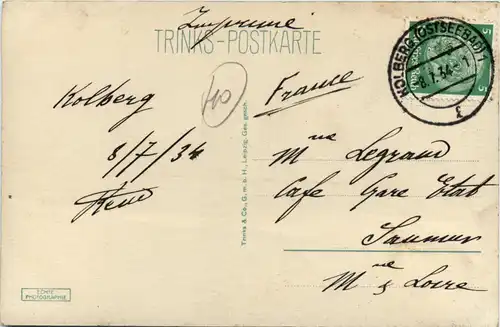 Imprimé
TRINKS-POSTKARTE
KOLBERG (OSTSEEBAD) 1
8.7.34.-1
f
5
5
40
France
Kolberg
8/7/34
Mme Legrand
Cafe Gare Etat
Saumur
Mne & Loire
Trinks & Co., G. m. b. H., Leipzig. Ges. gesch.
ECHTE
PHOTOGRAPHIE